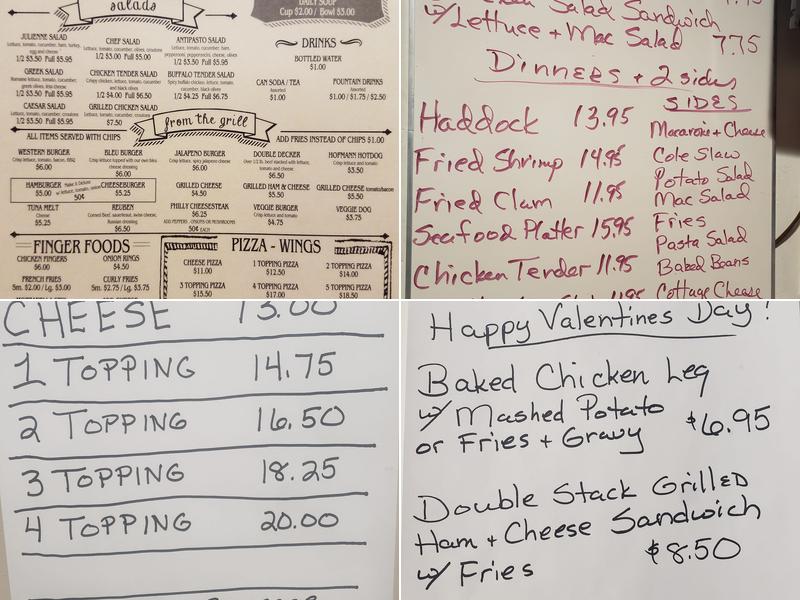 salads
DAILY SOUP
Cup $2.00 / Bowl $3.00
JULIENNE SALAD
Lettuce, tomato, cucumber, ham, turkey,
egg and cheese
1/2 $3.50 Full $5.95
CHEF SALAD
Lettuce, tomato, cucumber, olives, croutons
1/2 $3.00 Full $5.00
ANTIPASTO SALAD
Lettuce, tomato, cucumber, ham,
pepperoni, pepperoncini, cheese, olives
1/2 $3.50 Full $5.95
GREEK SALAD
Romaine lettuce, tomato, cucumber,
greek olives, feta cheese
1/2 $3.50 Full $6.50
CHICKEN TENDER SALAD
Crispy chicken, lettuce, tomato, cucumber
and black olives
1/2 $4.00 Full $6.50
BUFFALO TENDER SALAD
Spicy buffalo chicken, lettuce, tomato, cucumber
and black olives
1/2 $4.25 Full $6.75
CAESAR SALAD
1/2 $3.50 Full $5.95
GRILLED CHICKEN SALAD
Lettuce, tomato, cucumber, croutons
$7.50
DRINKS
BOTTLED WATER
$1.00
CAN SODA / TEA
Assorted
$1.00
FOUNTAIN DRINKS
Assorted
$1.00 / $1.75 / $2.50
from the grill
ALL ITEMS SERVED WITH CHIPS
ADD FRIES INSTEAD OF CHIPS $1.00
WESTERN BURGER
Crisp lettuce, tomato, bacon, BBQ
$6.00
BLEU BURGER
Crisp lettuce topped with our own bleu
cheese dressing
$6.00
JALAPENO BURGER
Crisp lettuce, spicy jalapeno cheese
$6.00
DOUBLE DECKER
Over 1/2 lb. beef stacked with lettuce,
tomato and cheese
$6.50
HOFMANN HOTDOG
Crisp lettuce, tomato
$3.50
HAMBURGER
$5.00
Make it Deluxe
w/ lettuce, tomato, onion
50¢
CHEESEBURGER
$5.25
GRILLED CHEESE
$4.50
GRILLED HAM & CHEESE
$5.50
GRILLED CHEESE tomato/bacon
$5.95
TUNA MELT
Cheese
$5.25
REUBEN
Corned Beef, sauerkraut, swiss cheese,
Russian dressing
$6.50
PHILLY CHEESESTEAK
$6.25
ADD PEPPERS, ONIONS OR MUSHROOMS
50¢ EACH
VEGGIE BURGER
Crisp lettuce and tomato
$4.75
VEGGIE DOG
$3.75
FINGER FOODS
CHICKEN FINGERS
$6.00
ONION RINGS
$4.50
FRENCH FRIES
Sm. $2.00 / Lg. $3.00
CURLY FRIES
Sm. $2.75 / Lg. $3.75
PIZZA - WINGS
CHEESE PIZZA
$11.00
1 TOPPING PIZZA
$12.50
2 TOPPING PIZZA
$14.00
3 TOPPING PIZZA
$15.50
4 TOPPING PIZZA
$17.00
5 TOPPING PIZZA
$18.50
Salad Sandwich
w/ Lettuce + Mac Salad 7.75
Dinners + 2 sides
Haddock 13.95
Fried Shrimp 14.95
Fried Clam 11.95
Seafood Platter 15.95
Chicken Tender 11.95
SIDES
Macaroni + Cheese
Cole Slaw
Potato Salad
Mac Salad
Fries
Pasta Salad
Baked Beans
Cottage Cheese
CHEESE 13.00
1 TOPPING 14.75
2 TOPPING 16.50
3 TOPPING 18.25
4 TOPPING 20.00
Happy Valentines Day!
Baked Chicken Leg
w/ Mashed Potato
or Fries + Gravy $6.95
Double Stack Grilled
Ham + Cheese Sandwich
w/ Fries $8.50